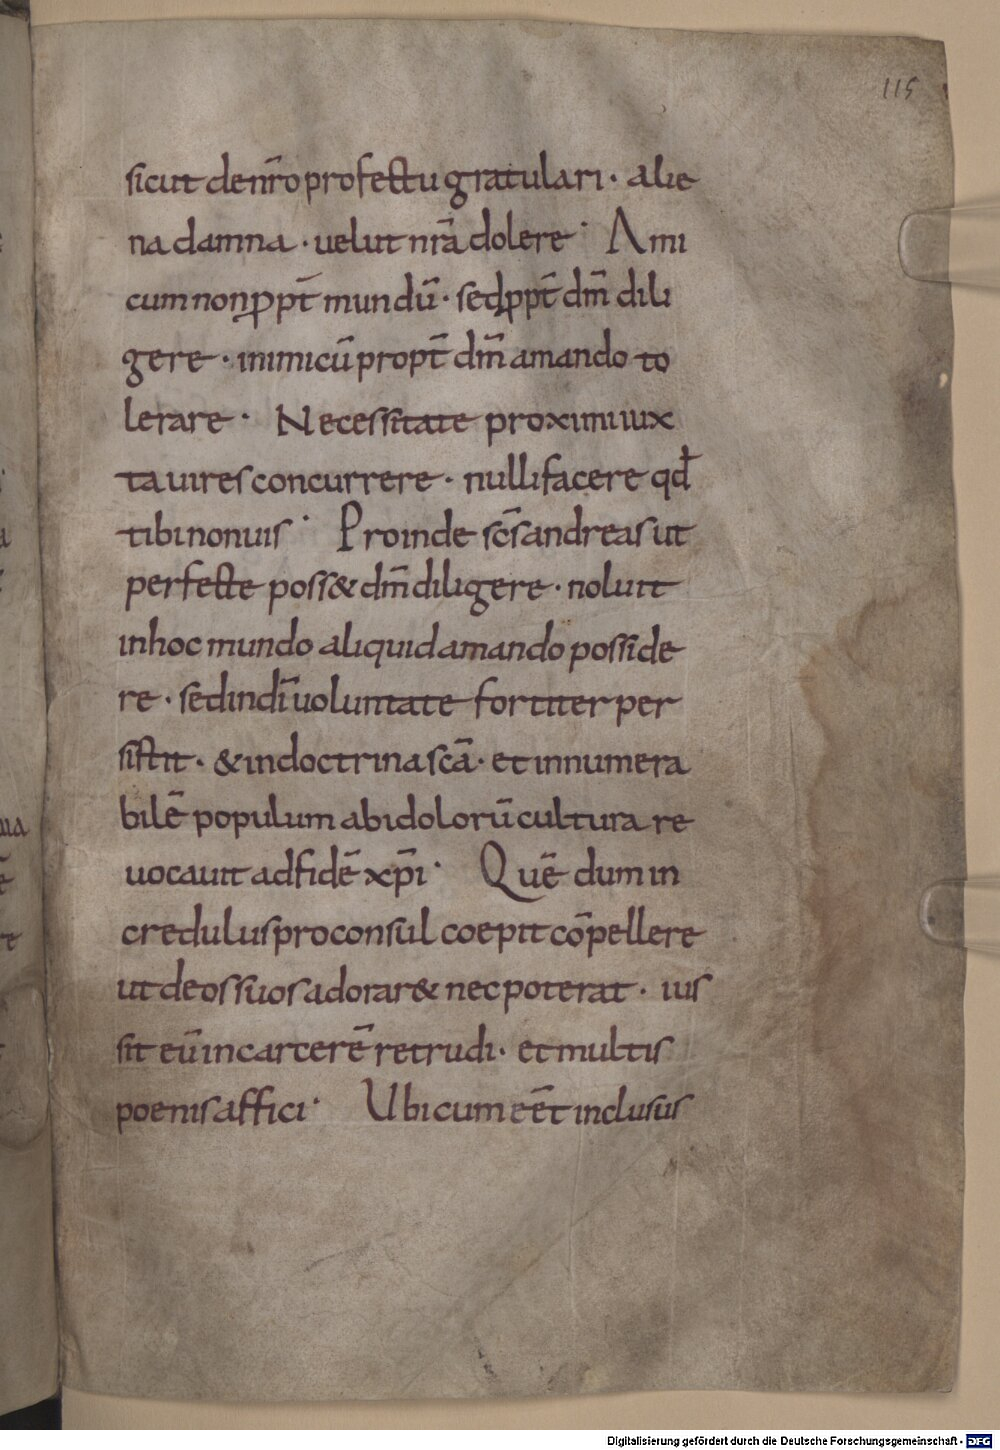 115
sicut de nr̄o profectu gratulari · alie
na damna · uelut nr̄a dolere · Ami
cum non ꝓpt̄ mundū · sed ꝓpt̄ dm̄ dili
gere · inimicū propt̄ dm̄ amando to
lerare · Necessitate proximi iux
ta uires concurrere · nulli facere qđ
tibi non uis · Proinde sc̄s andreas ut
perfecte poss& dm̄ diligere · noluit
in hoc mundo aliquid amando posside
re · sed in dī uoluntate fortiter per
sistit · & in doctrina scā · et innumera
bilē populum ab idolorū cultura re
uocauit ad fidē xp̄i · Quē dum in
credulus proconsul coepit cōpellere
ut deos suos adorar& nec poterat · ius
sit eū in carcerē retrudi · et multis
poenis affici · Ubi cum eēt inclusus
Digitalisierung gefördert durch die Deutsche Forschungsgemeinschaft - DFG